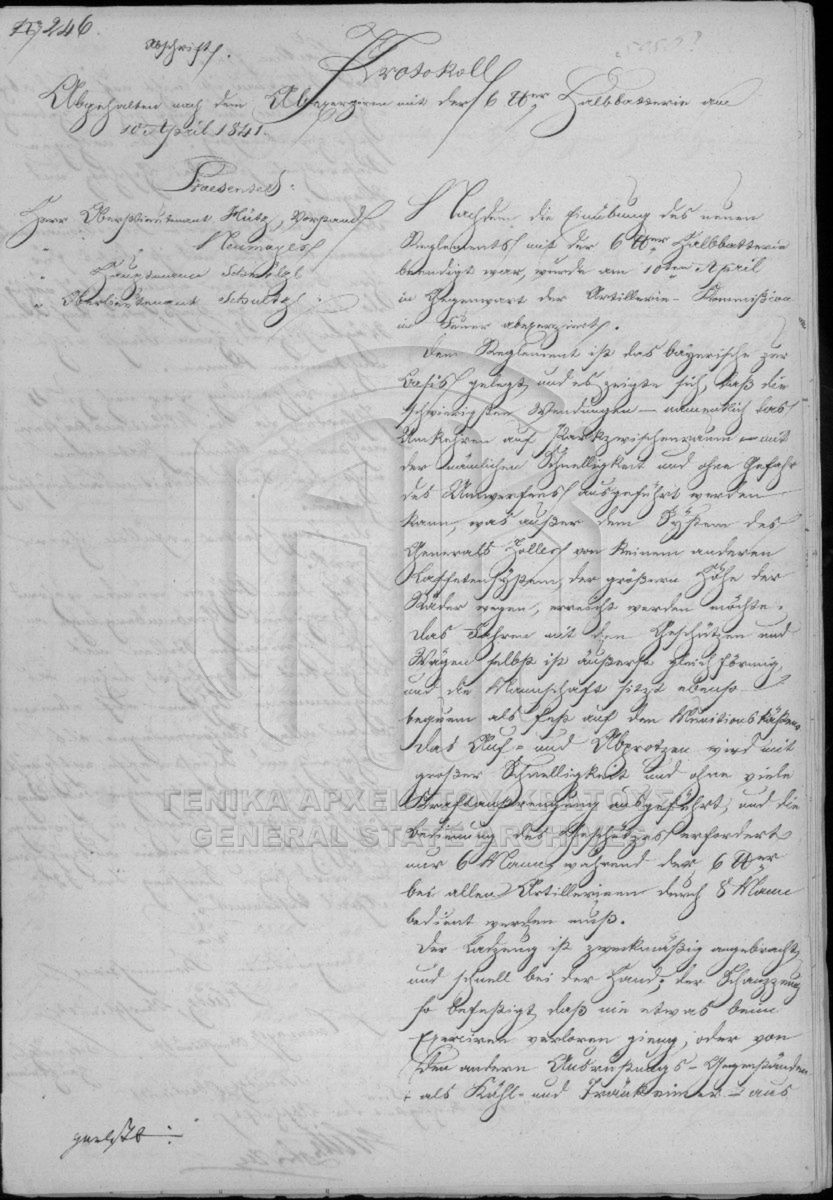 N 246.
Abschrift.
Protokoll
Abgehalten nach dem Abexerziren mit der 6 ℔er Halbbatterie am
10 April 1841.
Praesentes:
Herr Oberstlieutenant Hütz, Vorstand
" Neumayer
" Hauptmann
" Oberlieutenant Schultze
Nachdem die Einübung des neuen
Reglements mit der 6 ℔er Halbbatterie
beendigt war, wurde am 10ten April
in Gegenwart der Artillerie-Kommißion
im Feuer abexerziert.
Dem Reglement ist das bayerische zur
Basis gelegt, und es zeigte sich, daß die
schwierigsten Wendungen – namentlich das
Umkehren auf Parkzwischenraum – mit
der nämlichen Schnelligkeit und ohne Gefahr
des Umwerfens ausgeführt werden
kann, was außer dem Systeme des
Generals Zoller von keinem anderen
Laffetensystem, der größern Höhe der
Räder wegen, erreicht werden möchte.
Das Fahren mit den Geschützen und
Wägen selbst ist äußerst gleichförmig,
und die Mannschaft sitzt ebenso
bequem als fest auf den Munitionskästen.
Das Auf- und Abprotzen wird mit
großer Schnelligkeit und ohne viele
Kraftanstrengung ausgeführt, und die
Bedienung des Geschützes erfordert
nur 6 Mann, während der 6 ℔er
bei allen Artillerieen durch 8 Mann
bedient werden muß.
Der Ladzeug ist zweckmäßig angebracht,
und schnell bei der Hand; der Schanzzeug
so befestigt, daß nie etwas beim
Exerciren verloren gieng, oder von
den andern Ausrüstungs-Gegenständen
– als Kühl- und Tränkeimer – aus
ΓΕΝΙΚΑ ΑΡΧΕΙΑ ΤΟΥ ΚΡΑΤΟΥΣ
GENERAL STATE ARCHIVES